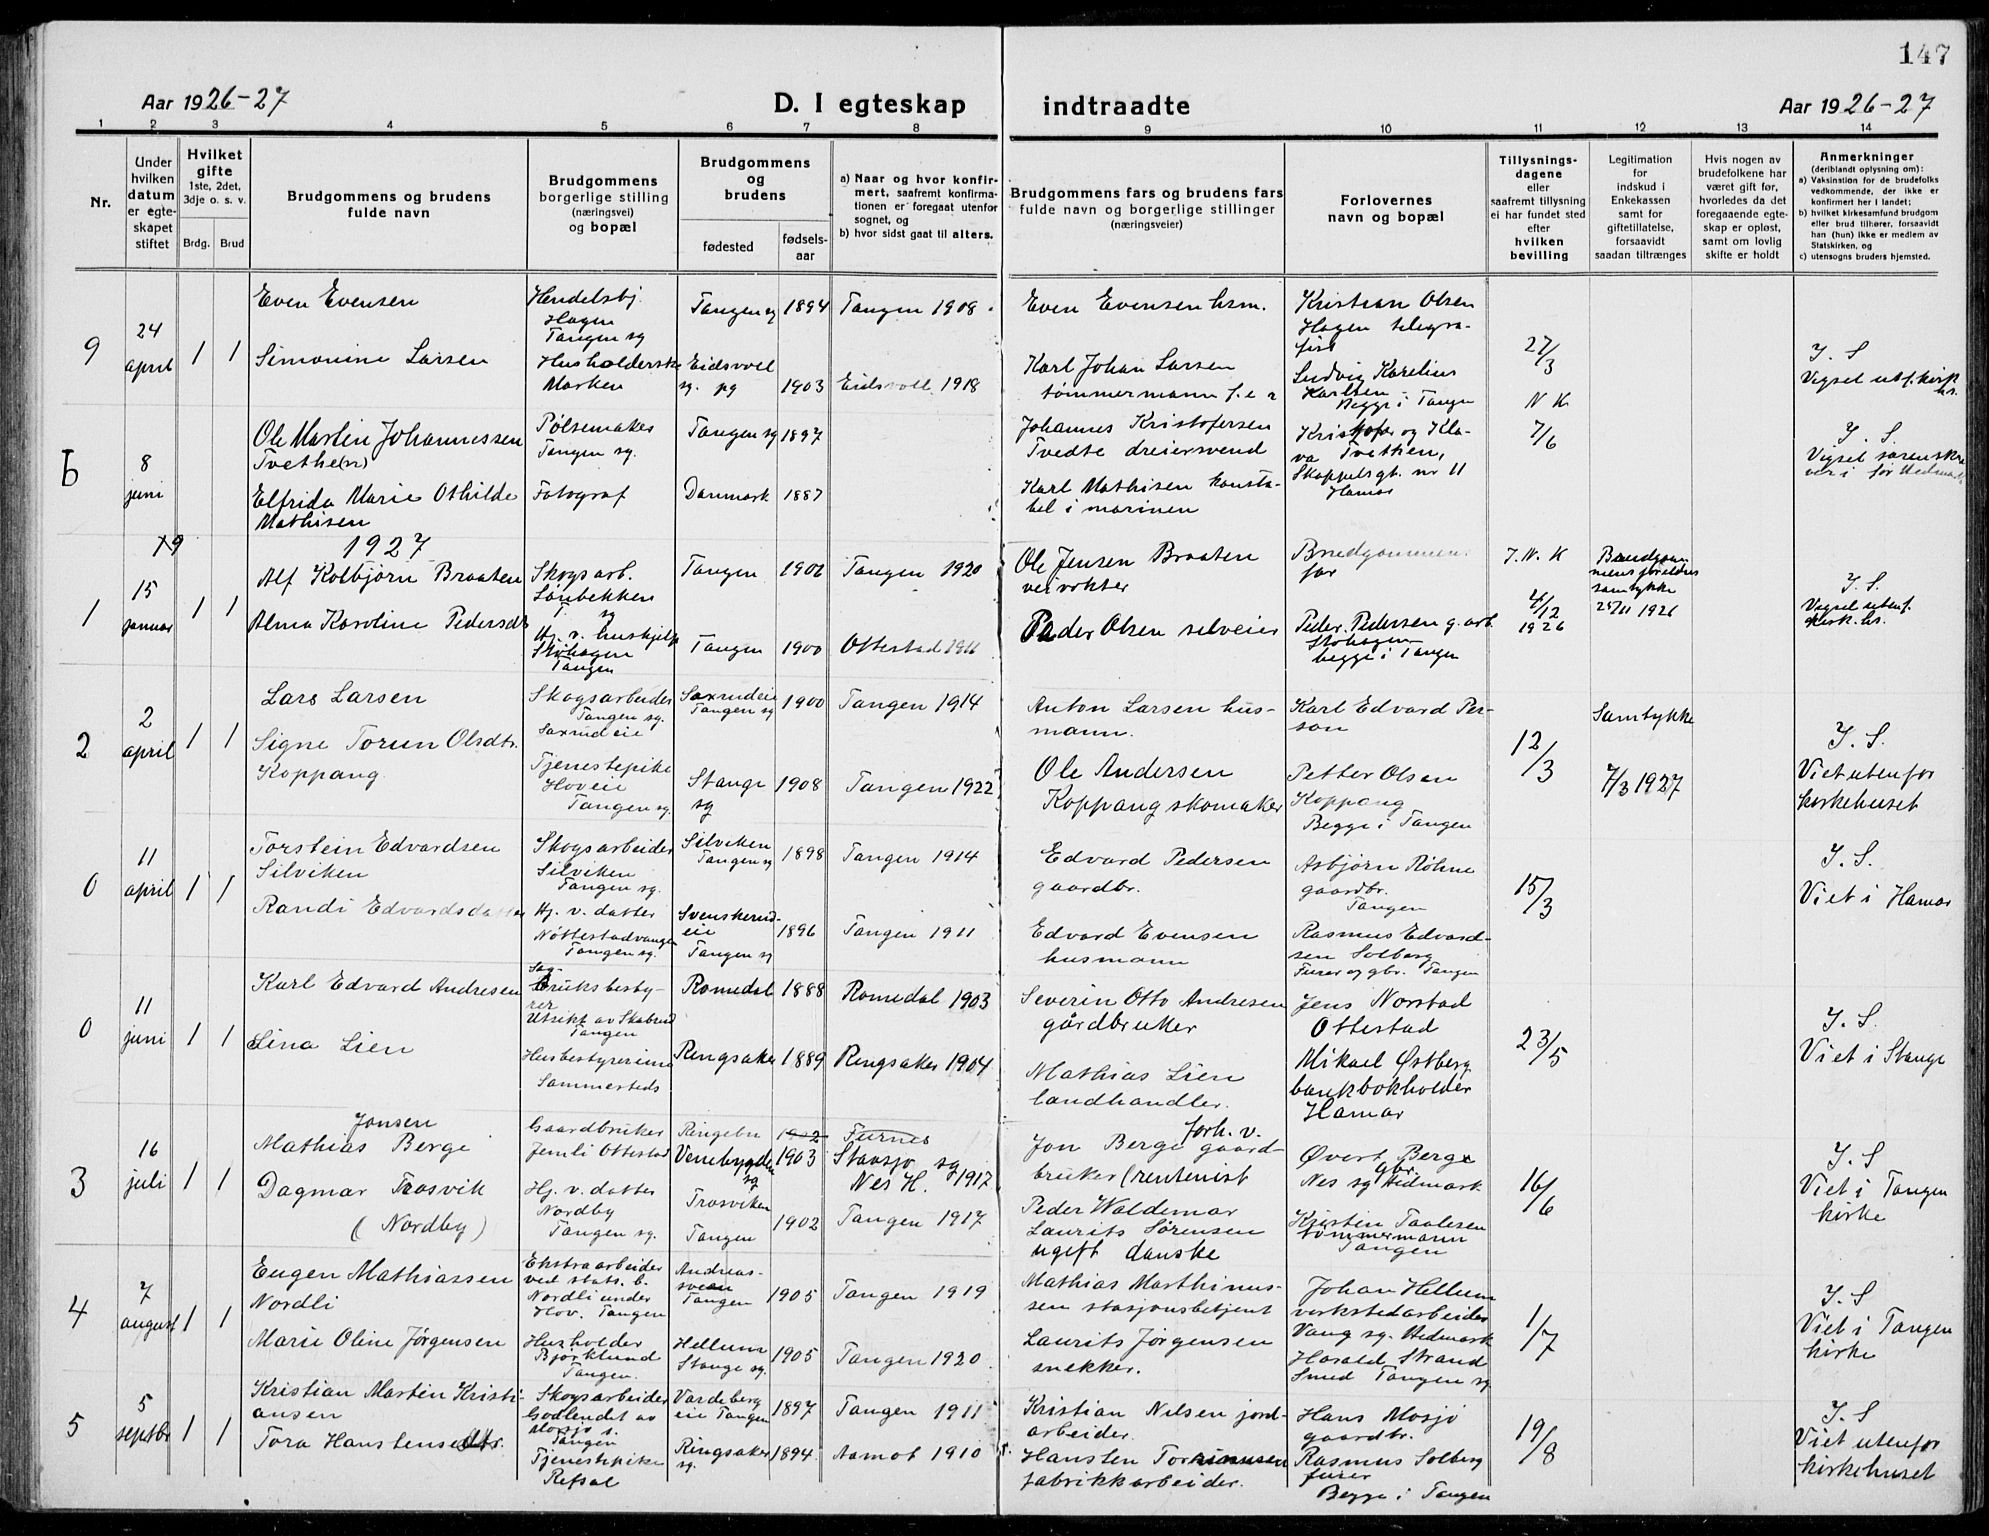 147
Aar 1926-27
D. I egteskap
indtraadte
Aar 1926-27
1 2 3 4 5 6 7 8 9 10 11 12 13 14
Nr.
Under hvilken datum er egteskapet stiftet
Hvilket gifte
1ste, 2det, 3dje o. s. v.
Brdg. Brud
Brudgommens og brudens fulde navn
Brudgommens borgerlige stilling (næringsvei) og bopæl
Brudgommens og brudens
fødested
fødselsaar
a) Naar og hvor konfirmert, saafremt konfirmationen er foregaat utenfor sognet, og
b) hvor sidst gaat til alters.
Brudgommens fars og brudens fars fulde navn og borgerlige stillinger (næringsveier)
Forlovernes navn og bopæl
Tillysningsdagene eller saafremt tillysning ei har fundet sted efter hvilken bevilling
Legitimation for indskud i Enkekassen samt for giftetillatelse, forsaavidt saadan tiltrænges
Hvis nogen av brudefolkene har været gift før, hvorledes da det foregaaende egteskap er opløst, samt om lovlig skifte er holdt
Anmerkninger (deriblandt oplysning om):
a) Vaksination for de brudefolks vedkommende, der ikke er konfirmert her i landet;
b) hvilket kirkesamfund brudgom eller brud tilhører, forsaavidt han (hun) ikke er medlem av Statskirken, og
c) utensogns bruders hjemsted.
9
24 april
1 1
Even Evensen
Hagen
Tangen sg
Tangen sg 1894 Tangen 1908
Even Evensen hsm.
Kristian Olsen
Hagen telegrafist
27/3
Simonine Larsen
Husholderske
Marken
Eidsvoll
sg. pg 1903 Eidsvoll 1918
Karl Johan Larsen
tømmermann
Ludvig Karelius
Karlsen
Begge i Tangen
N K
I. S
Vigsel utf. kirk
hs.
8 juni
Ole Martin Johannessen
Tvethe(n)
Pølsemaker
Tangen sg.
Tangen sg 1897
Johannes Kristofersen
Tvedte dreiersvend
Kristofer og Klava Tvethen,
Skappelsgt. nr 11
Hamar
7/6
I. S.
Vigsel sorenskriver i for Hedmark
Elfrida Marie Othilde
Mathisen
Fotograf
Danmark 1887
Karl Mathisen konstabel i marinen
19
1927
1
15 januar
1 1
Alf Kolbjørn Braaten
Skogsarb.
Lønbekken
T. sg
Tangen 1906 Tangen 1920
Ole Jensen Braaten
veivokter
Brudgommens
far
I. N. K
4/12
1926
Brudgommens foreldres
samtykke
25/11 1926
I. S.
Vigsel utenf.
kirk. hs.
Alma Karoline Pedersdtr
Hj. v. huskjelp
Stohagen
Tangen
Tangen 1900 Ottestad 1911
Peder Olsen selveier
Peder Pedersen g. arb.
Stohagen
begge i Tangen
2
2 april
1 1
Lars Larsen
Skogsarbeider
Tangen sg.
Saxrudeie
Saxrudeie
Tangen sg 1900 Tangen 1914
Anton Larsen husmann.
Karl Edvard Person
12/3
Samtykke
7/3 1927
I. S.
Viet utenfor
kirkehuset
Signe Torun Olsdtr.
Koppang
Tjenestepike
Hoveie
Tangen sg.
Stange
sg 1908 Tangen 1922
Ole Andersen
Koppang skomaker
Petter Olsen
Koppang
Begge i Tangen
0
11 april
1 1
Torstein Edvardsen
Silviken
Skogsarbeider
Silviken
Tangen sg.
Silviken
Tangen sg 1898 Tangen 1914
Edvard Pedersen
gaardbr.
Asbjørn Røhne
gaardbr.
Tangen
15/3
I. S.
Viet i Hamar
Randi Edvardsdatter
Hj. v. datter
Nøttestadvangen
Tangen sg.
Svenskerudeie
Tangen sg 1896 Tangen 1911
Edvard Evensen
husmann
Rasmus Edvardsen Solberg
Furer og gbr. Tangen
0
11 juni
1 1
Karl Edvard Andresen
Sagbruksbestyrer
Utsikt av Skabrud
Tangen
Romedal 1888 Romedal 1903
Severin Otto Andresen
gårdbruker
Jens Norstad
Ottestad
23/5
I. S.
Viet i Stange
Lina Lien
Husbestyrerinne
Sammesteds
Ringsaker 1889 Ringsaker 1904
Mathias Lien
landhandler.
Mikael Østberg
bankbokholder
Hamar
3
16 juli
1 1
Jonsen
Mathias Berge
Gaardbruker
Jemli Ottestad
Ringebu
Venebygden
sg
1902
1903
Furnes
Stavsjø sg
Nes H. 1917
forh. v.
Jon Berge gaardbruker (rentenist
Øvert Berge
gbr.
Nes sg Hedmark
16/6
I. S
Viet i Tangen
kirke
Dagmar Trosvik
(Nordby)
Hj. v. datter
Nordby
Tangen sg.
Trosviken
Tangen 1902 Tangen 1917
Peder Waldemar
Laurits Sørensen
ugift danske
Kristin Taalesen
tømmermann
Tangen
4
7 august
1 1
Eugen Mathiassen
Nordli
Ekstraarbeider
ved stats. b.
Nordli under
Hov. Tangen
Andreassveen
Tangen 1905 Tangen 1919
Mathias Marthinussen stasjonsbetjent
Johan Hellum
verkstedarbeider
Vang sg. Hedmark
1/7
I. S
Viet i Tangen
kirke
Marie Oline Jørgensen
Husholder
Bjørklund
Tangen.
Hellum
Stange sg. 1905 Tangen 1920
Laurits Jørgensen
snekker.
Harald Strand
Smed Tangen sg
5
5 septbr
1 1
Kristian Martin Kristiansen
Skogsarbeider
Godlendet av
Mosjø s.
Tangen
Vardeberg
eie Tangen 1897 Tangen 1911
Kristian Nilsen jordarbeider.
Hans Mosjø
gaardbr.
19/8
I. S
Viet utenfor
kirkehuset
Tora Hanstensedtr.
Tjenestepike
Refsal
Ringsaker
sg. 1894 Aamot 1910
Hansten Torsinusen
fabrikkarbeider.
Rasmus Solberg
furer
Begge i Tangen